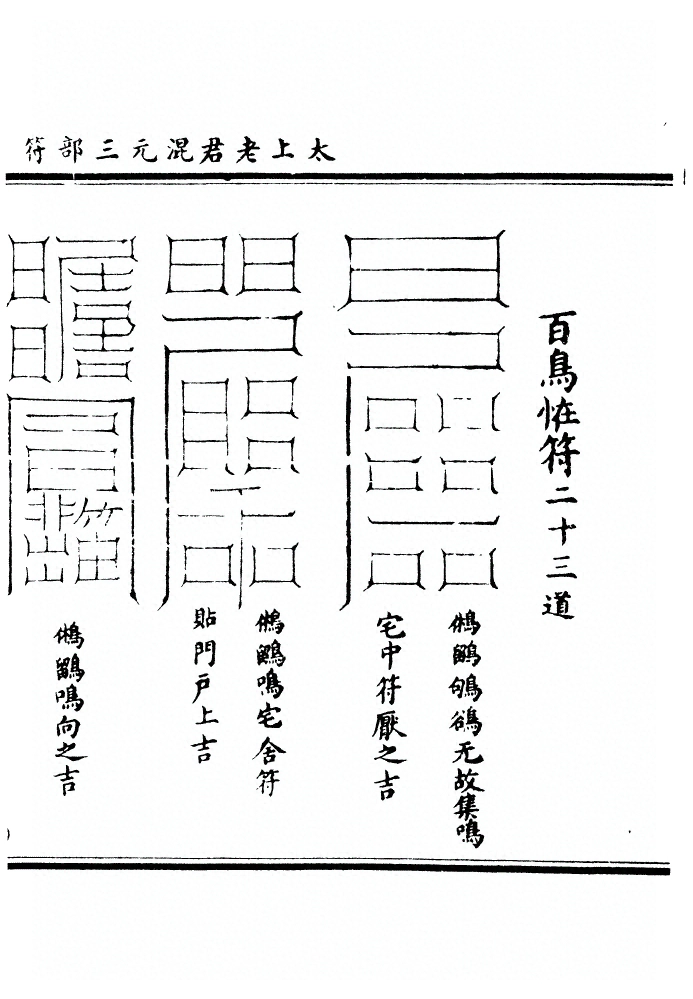 太上老君混元三部符
百鳥恠符二十三道
鵂鶹鴝鵒无故集鳴
宅中符厭之吉
鵂鶹鳴宅舍符
貼門戶上吉
鵂鶹鳴向之吉